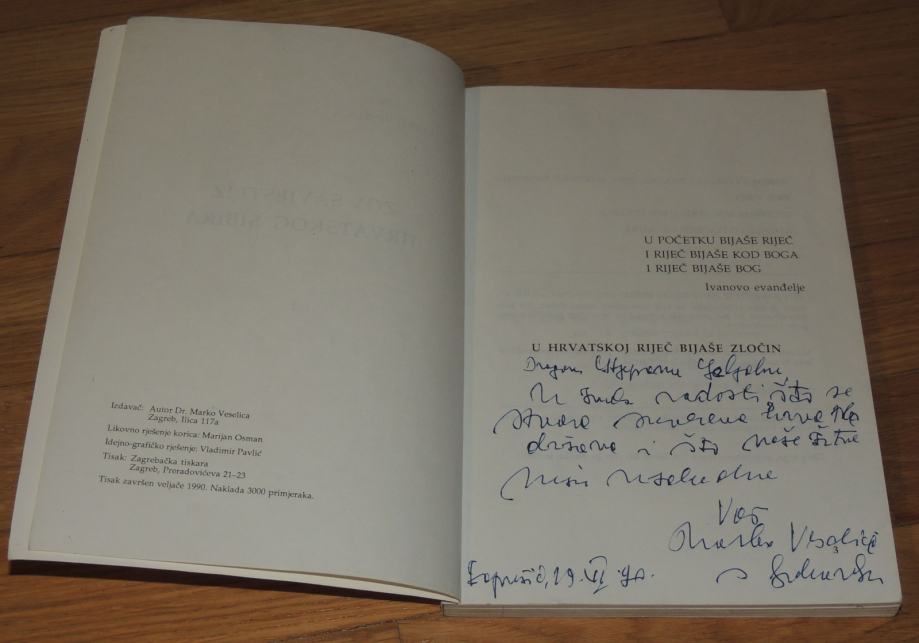 Izdavač: Autor Dr. Marko Veselica
Zagreb, Ilica 117a
Likovno rješenje korica: Marijan Osman
Idejno-grafičko rješenje: Vladimir Pavlić
Tisak: Zagrebačka tiskara
Zagreb, Preradovićeva 21–23
Tisak završen veljače 1990. Naklada 3000 primjeraka.
U POČETKU BIJAŠE RIJEČ
I RIJEČ BIJAŠE KOD BOGA
I RIJEČ BIJAŠE BOG
Ivanovo evanđelje
U HRVATSKOJ RIJEČ BIJAŠE ZLOČIN
Dragom Stjepanu
U znak radosti što se
stvara suverena hrvatska
država i što naše žrtve
nisu uzaludne
Vaš
Marko Veselica
3
Zaprešić, 19. VI 90.